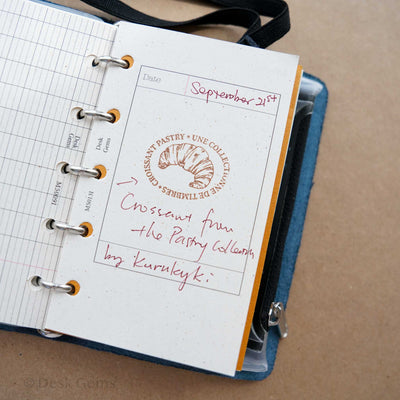 Date
September 21st
CROISSANT PASTRY • UNE COLLECTIONNE DE TIMBRES •
Croissant from
the Pastry Collection
by Kurukyki
Desk
Gems
M5013N
Desk
Gems
© Desk Gems